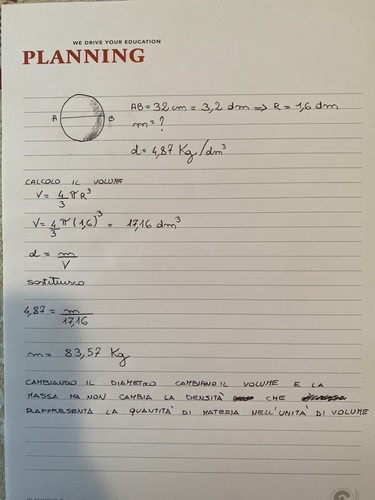 WE DRIVE YOUR EDUCATION
PLANNING
A B AB = 32 cm = 3,2 dm => R = 1,6 dm
m = ?
d = 4,87 Kg/dm³
CALCOLO IL VOLUME
V = 4/3 π R³
V = 4/3 π (1,6)³ = 17,16 dm³
d = m/V
sostituisco
4,87 = m/17,16
m = 83,57 Kg
CAMBIANDO IL DIAMETRO CAMBIANO IL VOLUME E LA
MASSA MA NON CAMBIA LA DENSITÀ CHE
RAPPRESENTA LA QUANTITA' DI MATERIA NELL'UNITA' DI VOLUME